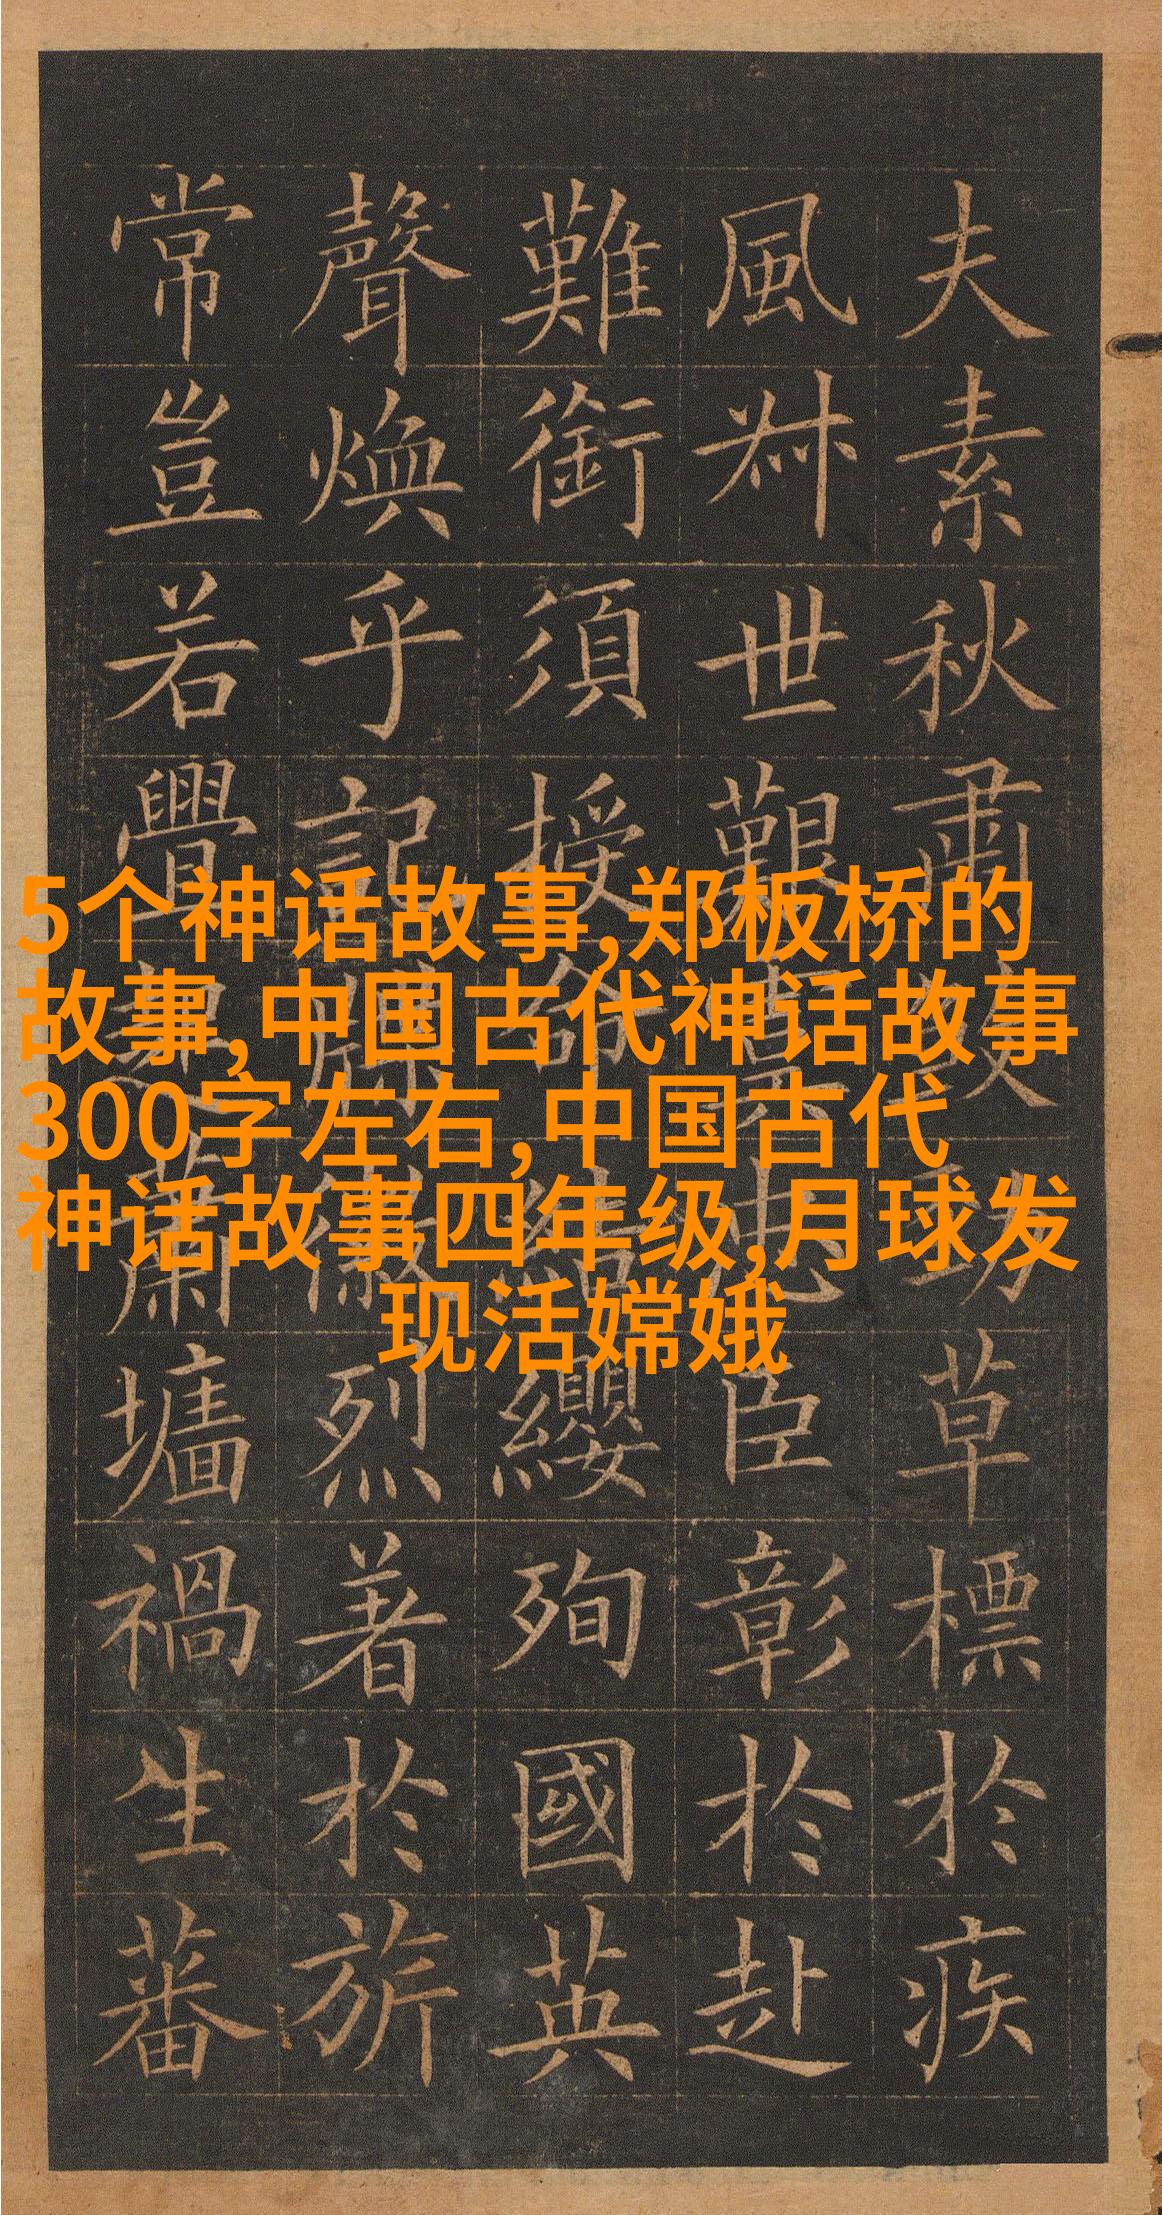 夫素秋肅勁草標於疾
風叔世艱虞忠臣彰於赴
難銜須授命結纓殉國英
聲煥乎記牒徽烈著於旂
常豈若釁起蕭墻禍生蕃
5个神话故事,郑板桥的
故事,中国古代神话故事
300字左右,中国古代
神话故事四年级,月球发
现活嫦娥